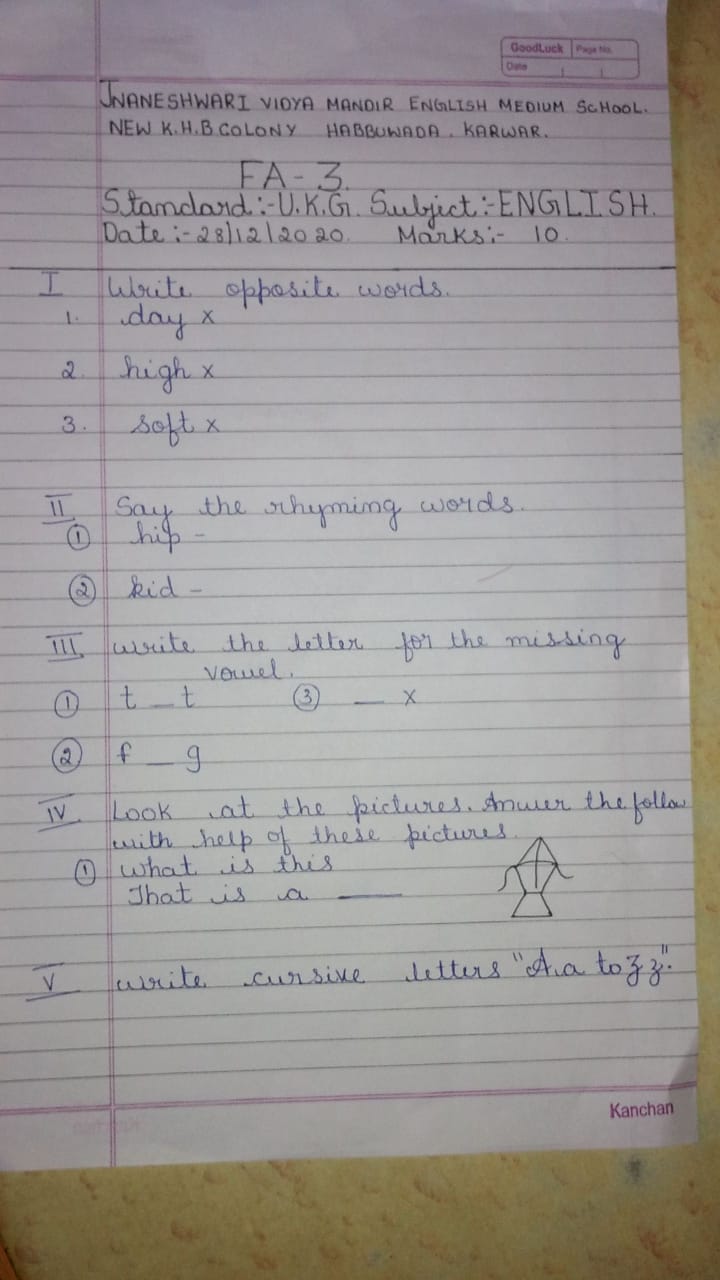 GoodLuck Page No.
Date
JNANESHWARI VIDYA MANDIR ENGLISH MEDIUM SCHOOL.
NEW K.H.B COLONY HABBUWADA. KARWAR.
FA-3.
Standard:-U.K.G. Subject:-ENGLISH.
Date:-28/12/2020. Marks:- 10.
I Write opposite words.
1. day x
2. high x
3. soft x
II Say the rhyming words.
① hip -
② kid -
III write the letter for the missing
vowel.
① t _ t ③ _ x
② f _ g
IV Look at the pictures. Anwer the follow
with help of these pictures.
① what is this
That is a ___
V write cursive letters "A.a to Z z".
Kanchan